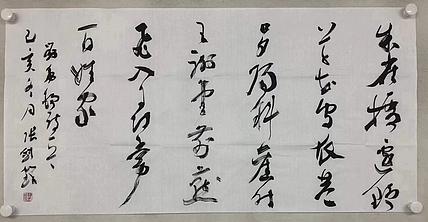 朱雀橋邊野
草花烏衣巷
口夕陽斜舊時
王謝堂前燕
飛入尋常
百姓家
劉禹錫詩一首
己亥年月張